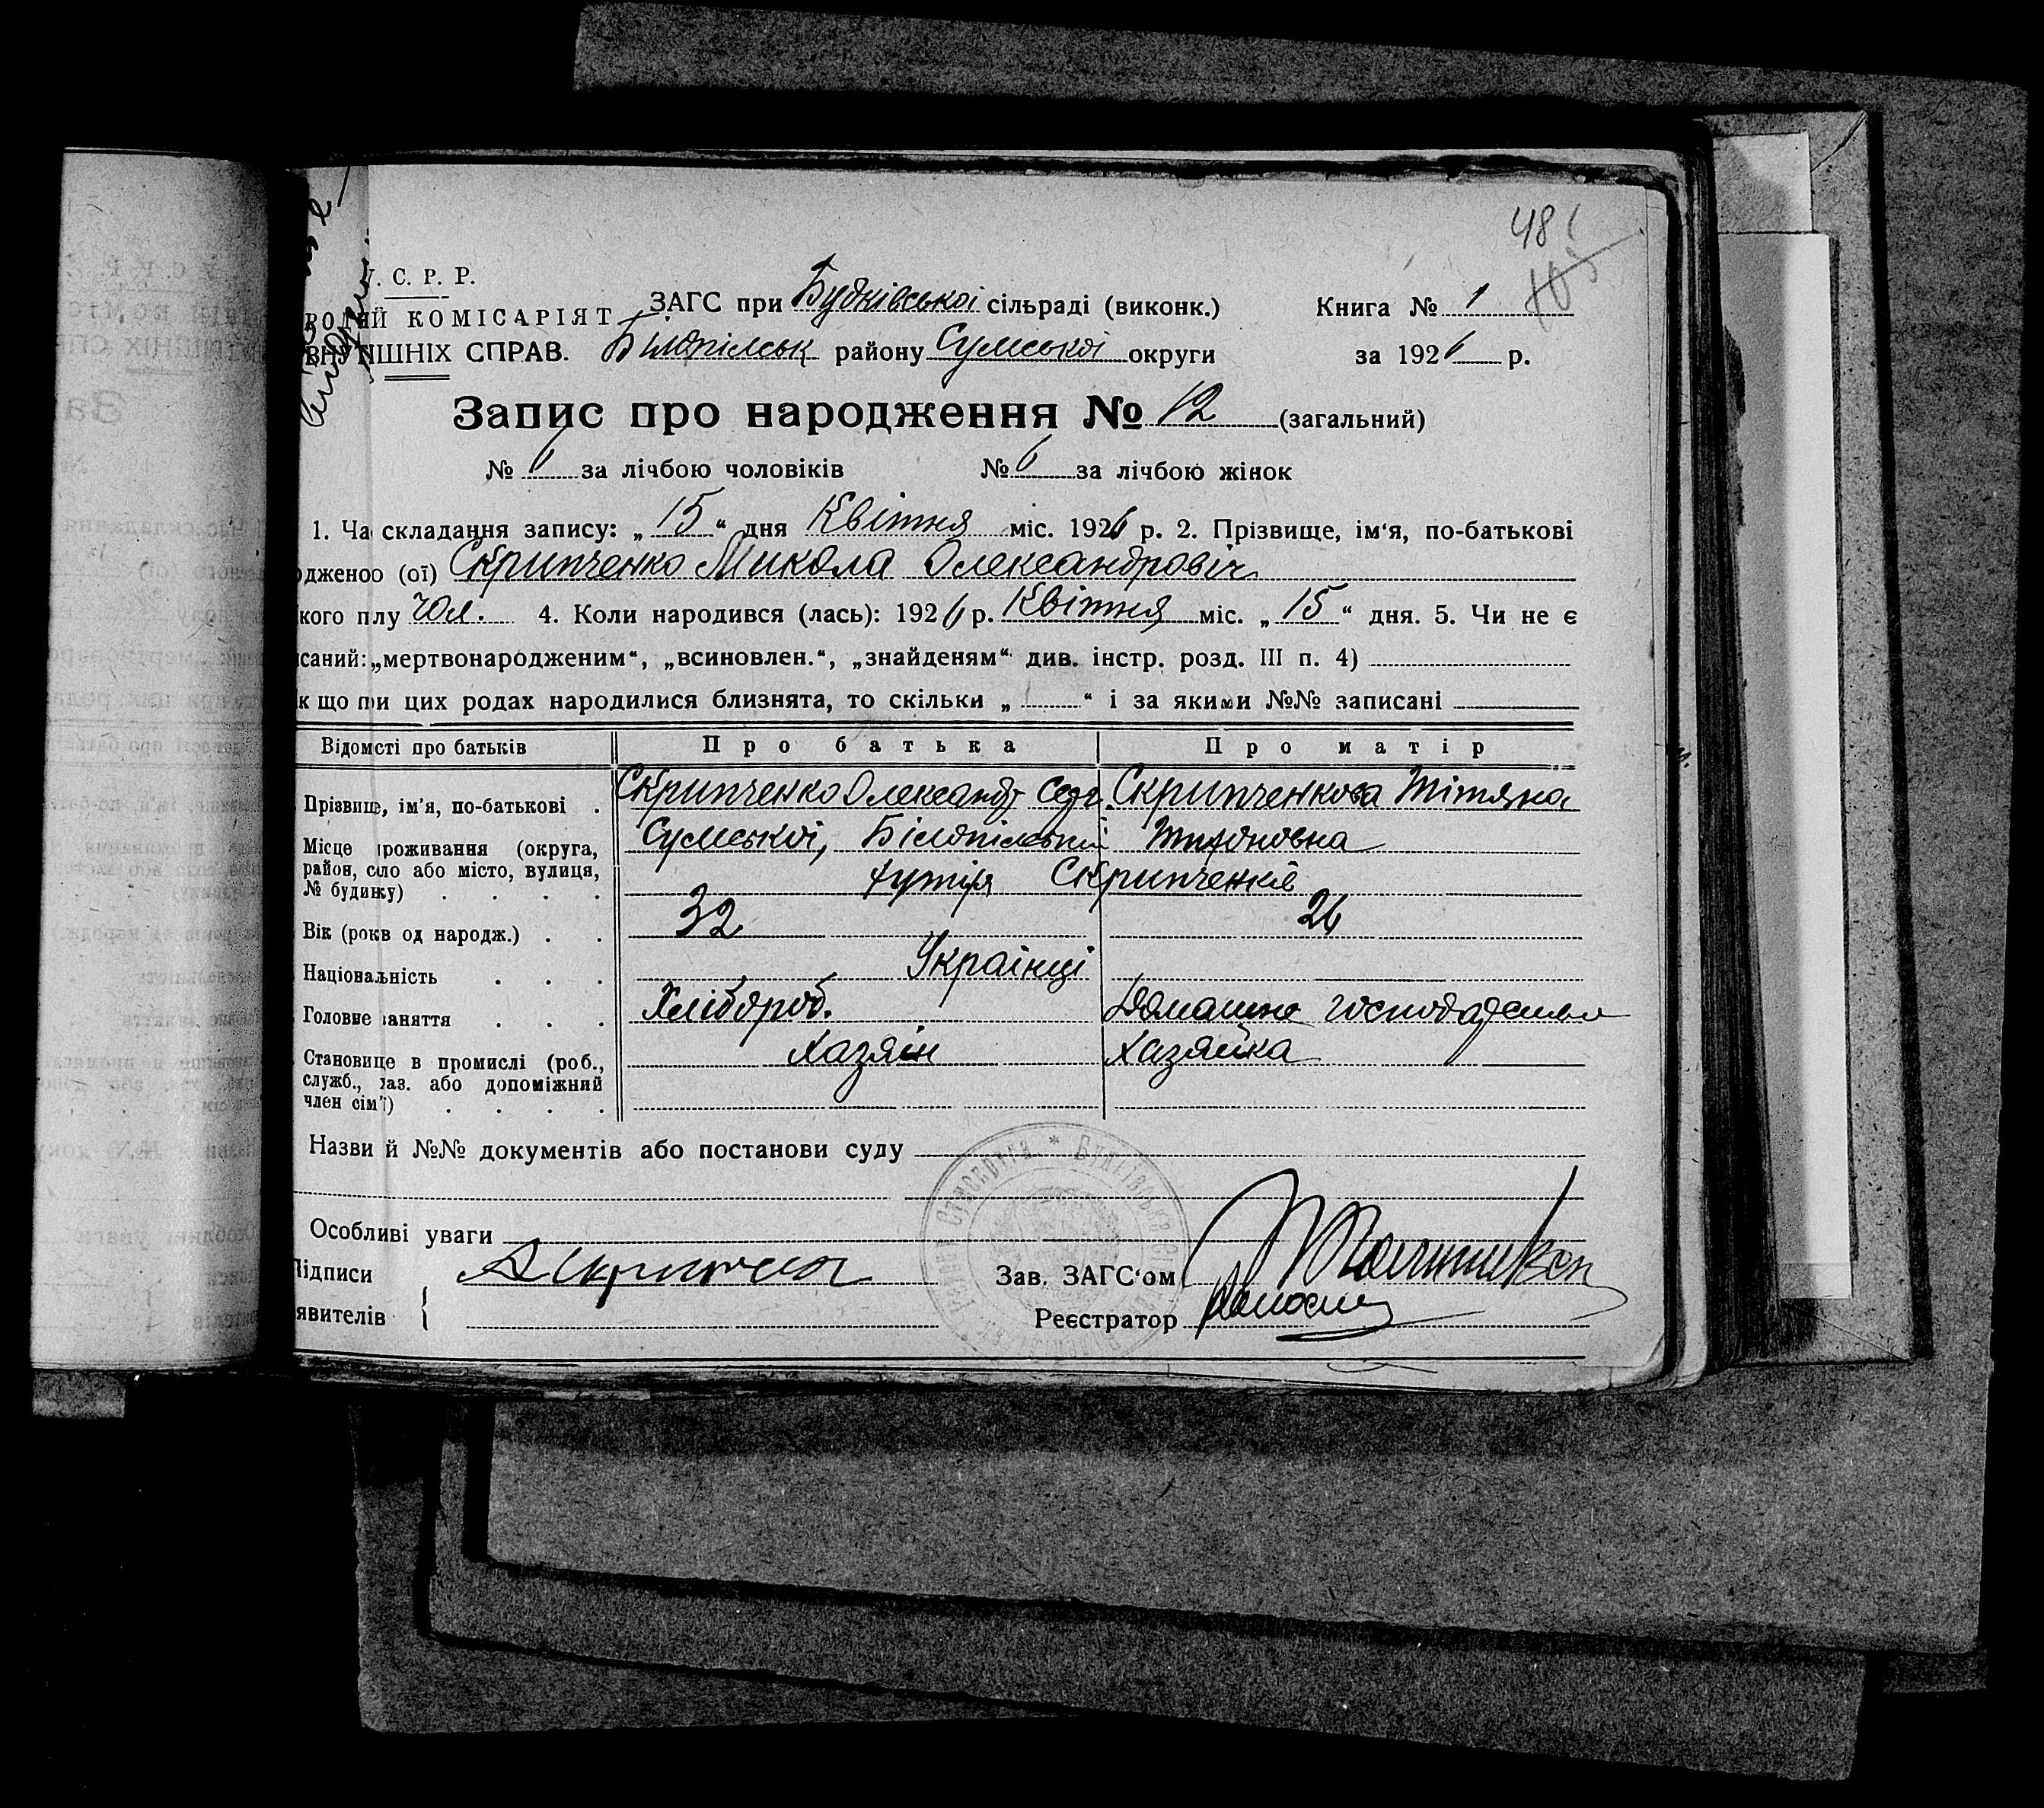 48
У. С. Р. Р.
РОДНІЙ КОМІСАРІЯТ
ВНУТРІШНІХ СПРАВ.
ЗАГС при Будківської сільраді (виконк.)
Білопільськ району Сумської округи
Книга № 1
за 1926 р.
Запис про народження № 12 (загальний)
№ 6 за лічбою чоловіків № 6 за лічбою жінок
1. Час складання запису: „ 15 “ дня Квітня міс. 1926 р. 2. Прізвище, ім‘я, по-батькові
одженоо (ої) Скрипченко Микола Олександровіч
кого полу Чол. 4. Коли народився (лась): 1926 р. Квітня міс. „ 15 “ дня. 5. Чи не є
исаний: „мертвонародженим“, „всиновлен.“, „знайденям“ див. інстр. розд. III п. 4)
к що при цих родах народилися близнята, то скільки „ “ і за якими №№ записані
Відомсті про батьків Про батька Про матір
Прізвище, ім‘я, по-батькові . Скрипченко Олександр Скрипченкова Тітяна
Місце проживання (округа, Сумської, Білопільський Тихоновна
район, село або місто, вулиця,
№ будинку) . . . . хутір Скрипченків
Вік (років од народж.) . . 32 26
Національність . . . Українці
Головне заняття . . . Хлібороб. Домашнє господарство
Становище в промислі (роб., Хазяін Хазяйка
служб., хаз. або допоміжний
член сім‘ї) . . . .
Назви й №№ документів або постанови суду
Особливі уваги
Підписи
явителів
Зав. ЗАГС‘ом
Реєстратор